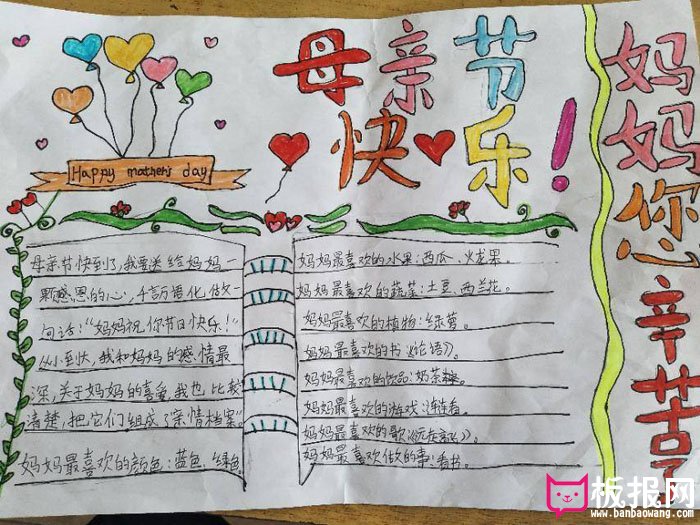 母亲节
快乐！
Happy mother's day
妈妈您辛苦了
母亲节快到了,我要送给妈妈一
颗感恩的心,千言万语化做一
句话:"妈妈祝你节日快乐!"
从小至大,我和妈妈的感情最
深,关于妈妈的喜爱,我也比较
清楚,把它们组成了亲情档案"
妈妈最喜欢的颜色:蓝色、绿色
妈妈最喜欢的水果:西瓜、火龙果。
妈妈最喜欢的蔬菜:土豆、西兰花。
妈妈最喜欢的植物:绿萝。
妈妈最喜欢的书《论语》。
妈妈最喜欢的饮品:奶茶
妈妈最喜欢的游戏:连连看。
妈妈最喜欢的歌
妈妈最喜欢做的事:看书。
板报网
www.banbaowang.com